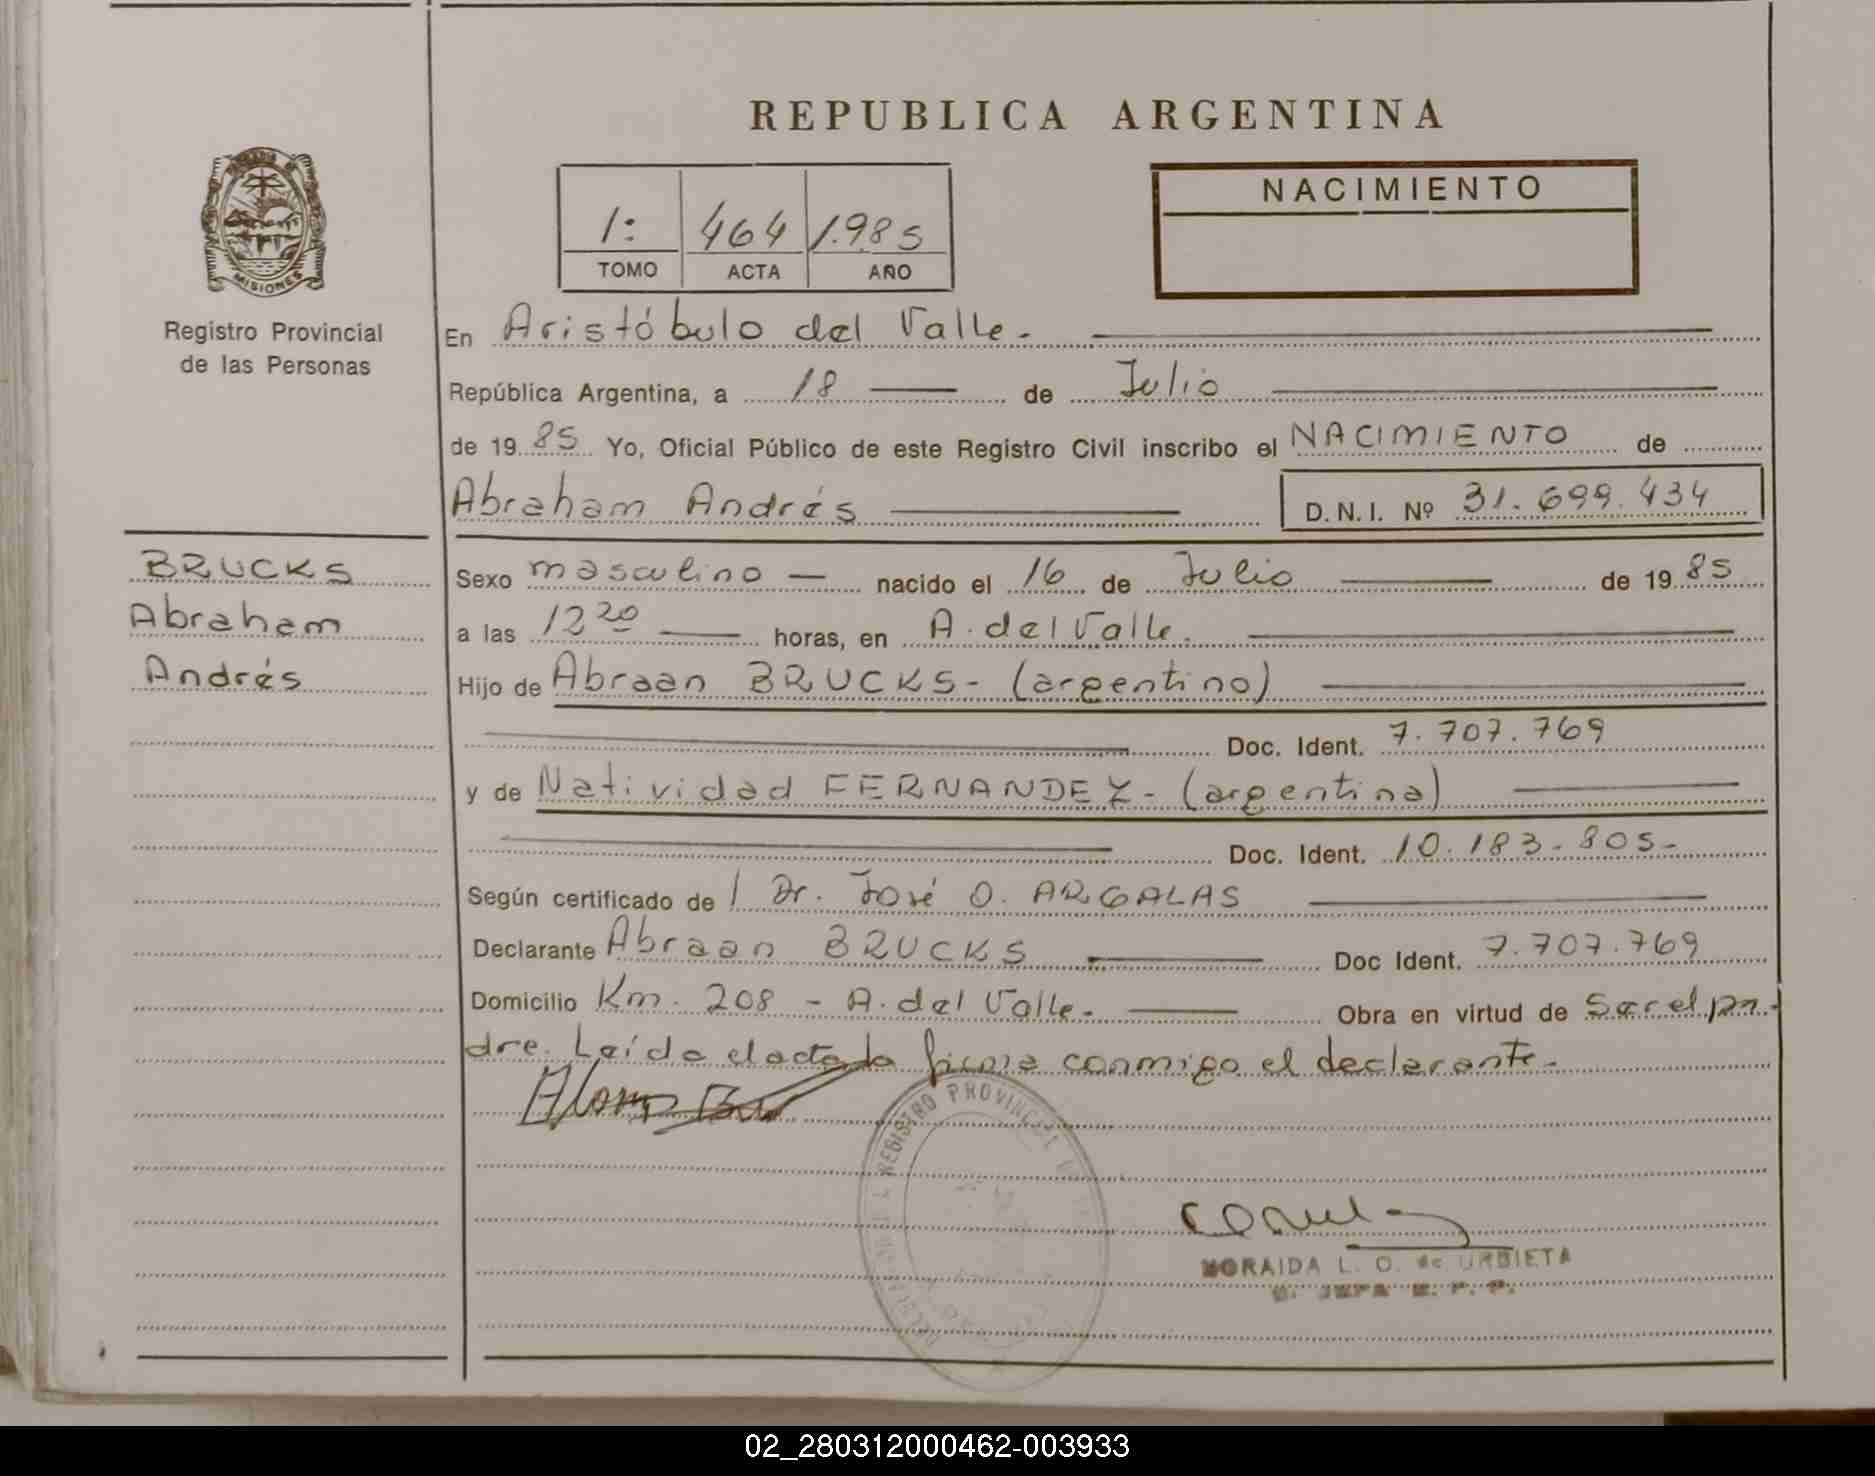 REPUBLICA ARGENTINA
MISIONES
Registro Provincial
de las Personas
1: 464 1.985
TOMO ACTA AÑO
NACIMIENTO
En Aristóbulo del Valle.
República Argentina, a 18 de Julio
de 19 85 Yo, Oficial Público de este Registro Civil inscribo el NACIMIENTO de
Abraham Andrés D.N.I. Nº 31.699.434
BRUCKS
Abraham
Andrés
Sexo masculino nacido el 16 de Julio de 19 85
a las 12 20 horas, en A. del Valle.
Hijo de Abraan BRUCKS- (argentino)
Doc. Ident. 7.707.769
y de Natividad FERNANDEZ- (argentina)
Doc. Ident. 10.183.805-
Según certificado de l Dr. José O. ARGALAS
Declarante Abraan BRUCKS Doc Ident. 7.707.769
Domicilio Km. 208 - A. del Valle. Obra en virtud de Ser el pa-
dre. Leída el acta la firma conmigo el declarante.
REGISTRO PROVINCIAL
MORAIDA L. O. de URBIETA
02_280312000462-003933